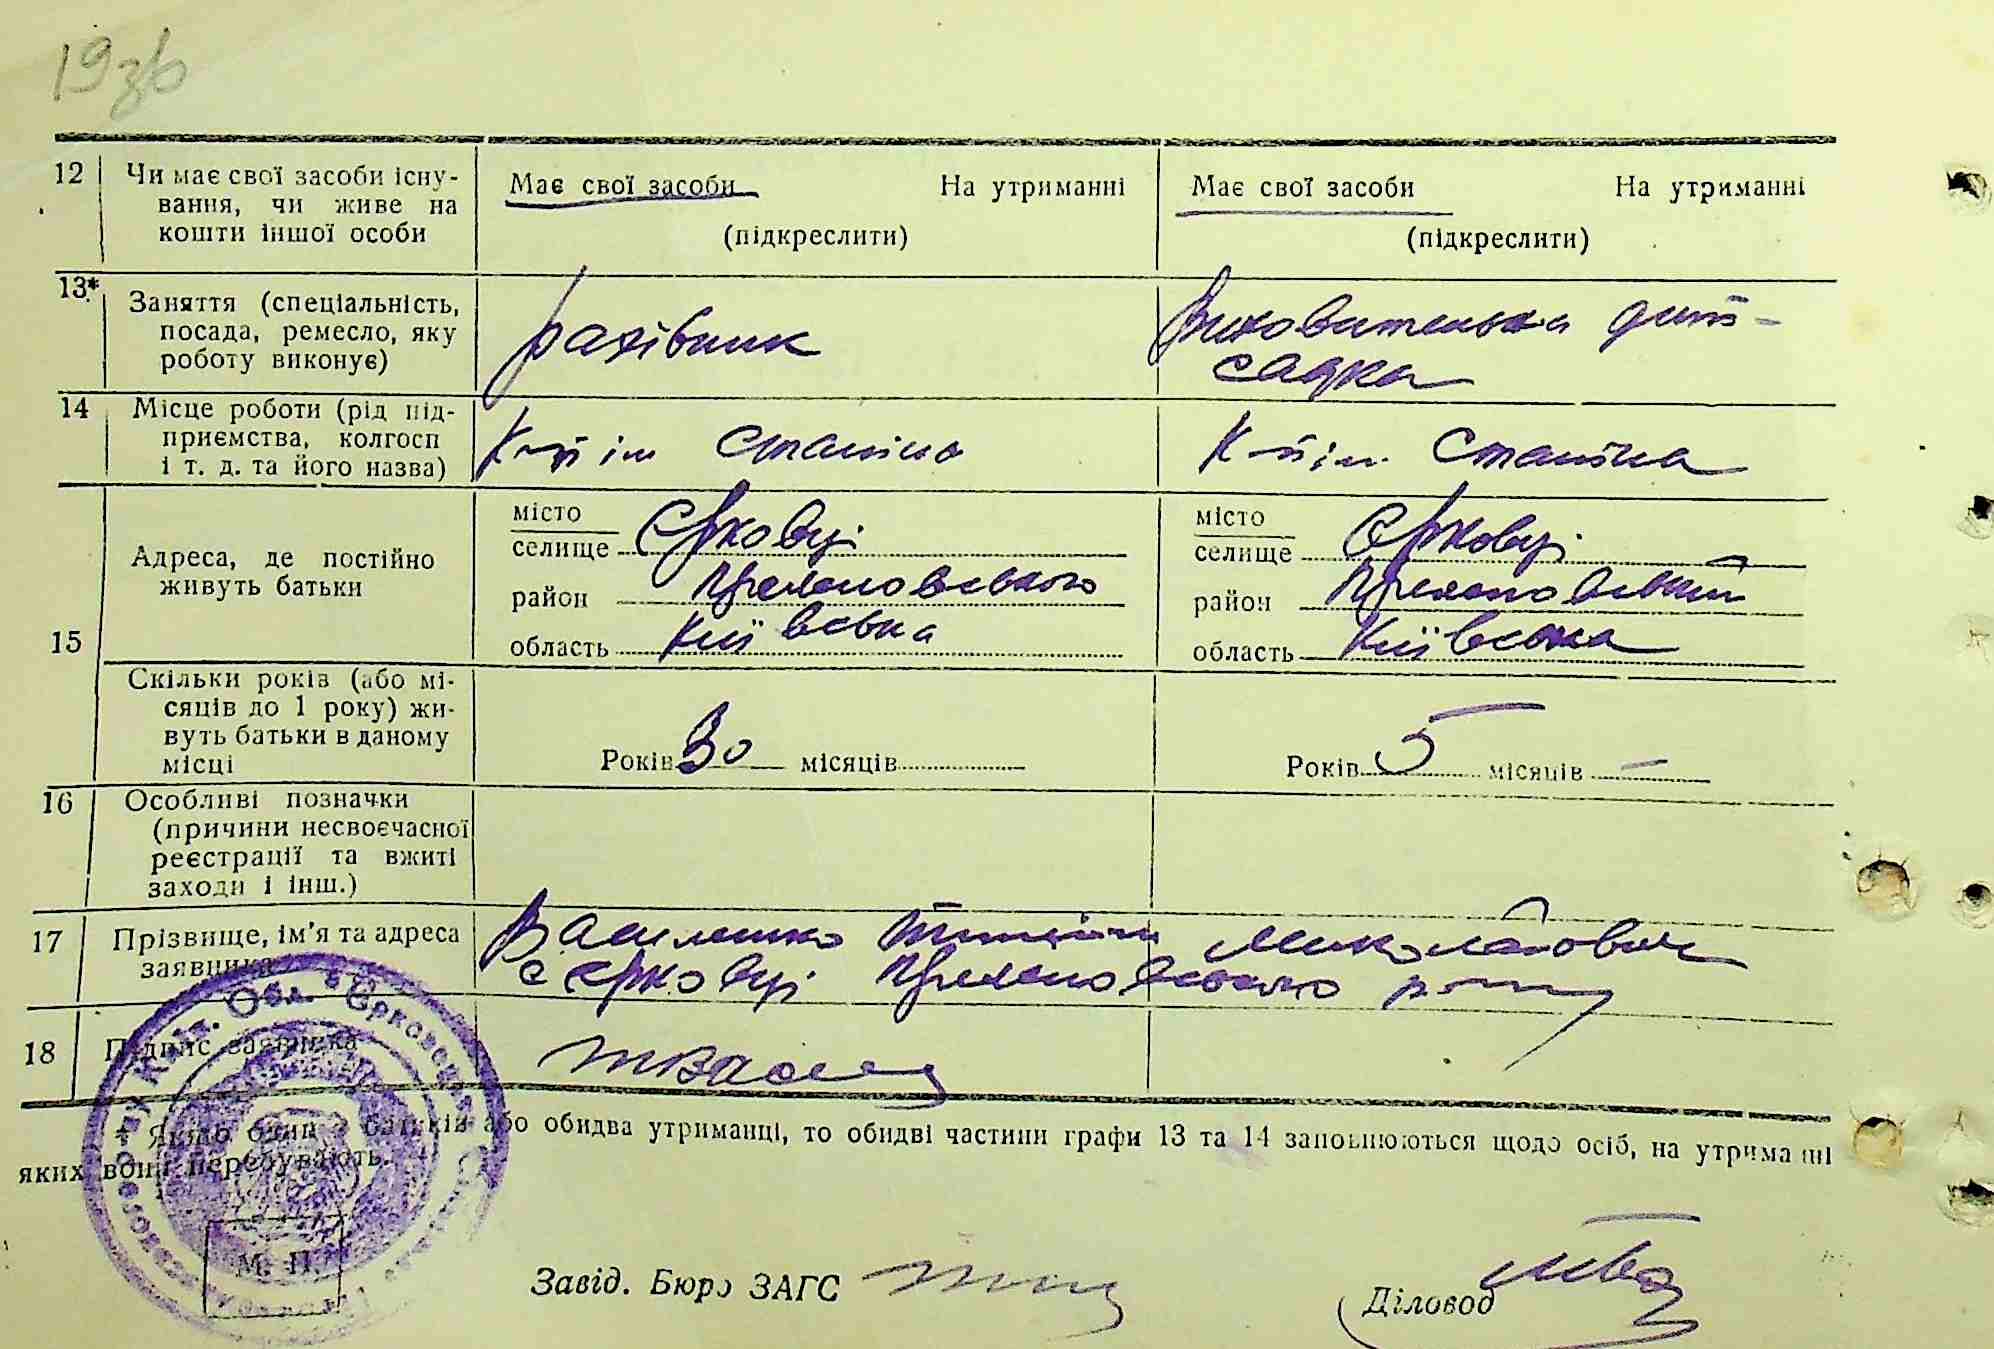 19зв
12 Чи має свої засоби існу-
вання, чи живе на
кошти іншої особи
Має свої засоби На утриманні
(підкреслити)
Має свої засоби На утриманні
(підкреслити)
13* Заняття (спеціальність,
посада, ремесло, яку
роботу виконує)
рахівник
Вихователька дит-
садка
14 Місце роботи (рід під-
приємства, колгосп
і т. д. та його назва)
К-п ім Сталіна
К-п ім. Сталіна
15
Адреса, де постійно
живуть батьки
місто
селище Єрковці
район
область Київська
місто
селище Єрковці
район
область Київська
Скільки років (або мі-
сяців до 1 року) жи-
вуть батьки в даному
місці
Років 30 місяців
Років 5 місяців –
16 Особливі позначки
(причини несвоєчасної
реєстрації та вжиті
заходи і інш.)
17 Прізвище, ім'я та адреса
заявника
Василенко Миколайович
с Єрковці
18 Підпис заявника
* Якщо один з батьків або обидва утриманці, то обидві частини графи 13 та 14 заповнюються щодо осіб, на утриманні
яких вони перебувають.
М. П.
Завід. Бюро ЗАГС
Діловод